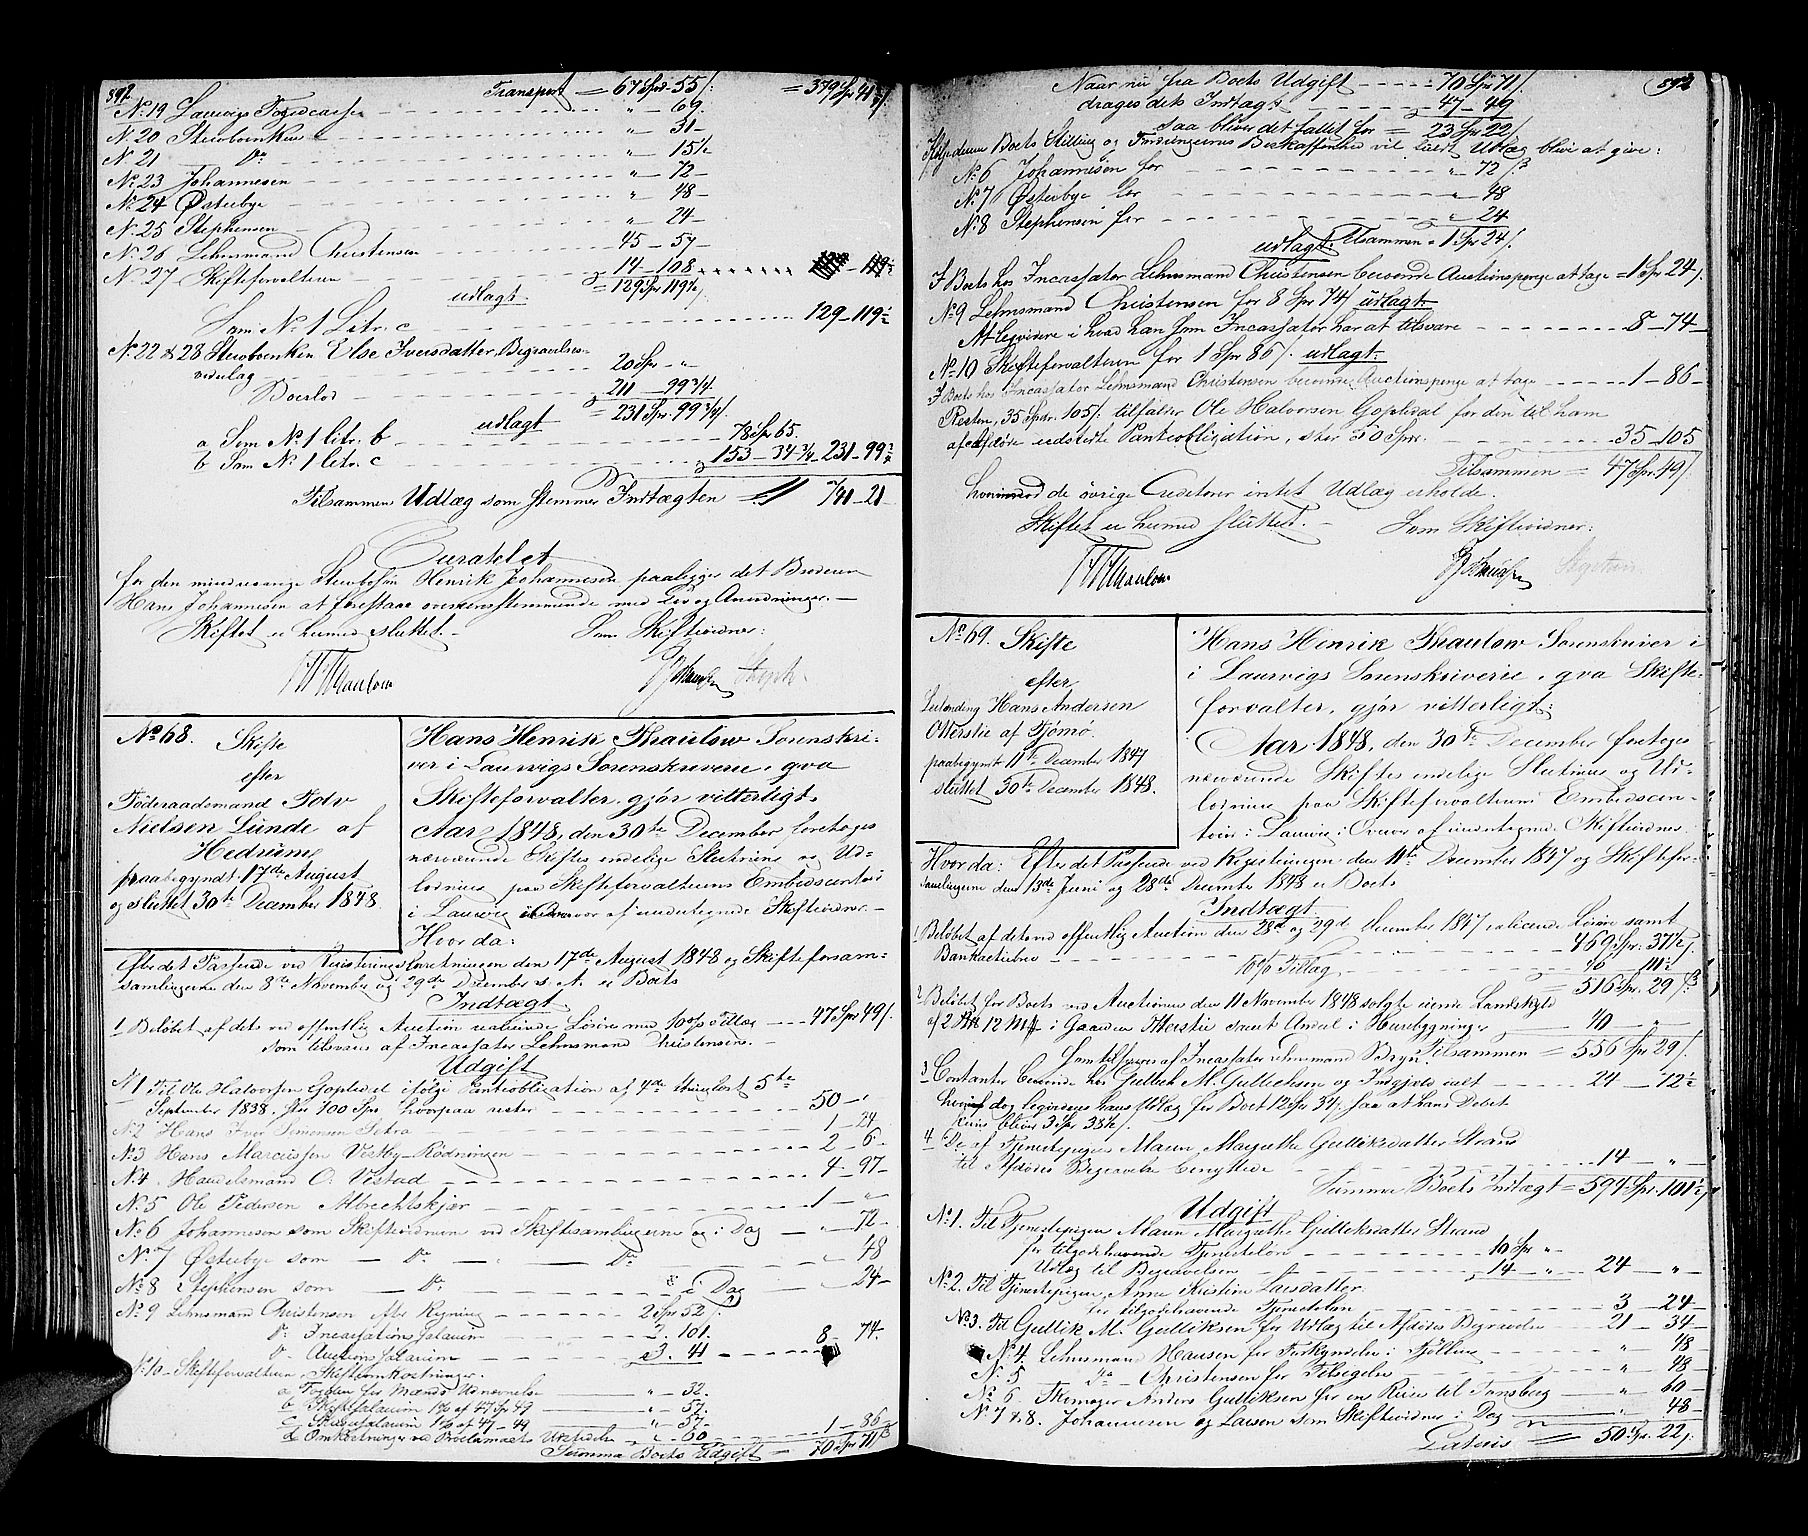 892
Transport = 67 Spd 55 /: = 379 Spd 41 ½ /:
No 19 Laurvigs Fogedcasse " 69.
No 20 Sterboenken " 31 –
No 21 Do " 15 ½
No 23 Johannesen " 72 –
No 24 Østerbye " 48 –
No 25 Stephensen " 24 –
No 26 Lehnsmand Christensen 45 – 57 –
No 27 Skifteforvalteren 14 – 108
= 129 Spd 119 ½ /:
udlagt.
Som No 1 Litr. c 129 – 119 ½
No 22 & 28 Sterboenken Else Iversdatter, Begravelses-
vederlag 20 Spd "
Boeslod 211 – 99 3/4
= 231 Spd. 99 3/4 /:
udlagt
a Som No 1 litr. b 78 Spd 65.
b Som No 1 litr. c 153 – 34 3/4 – 231 – 99 3/4
Tilsammen Udlæg som stemmer Indtægten = 741 – 21 –
Curatelet
for den mindreaarige Sterbesøn Henrik Johannesen paalægges det Broderen
Hans Johannesen at forestaae overensstemmende med Lov og Anordninger. –
Skiftet er hermed sluttet. – Som Skiftevidner:
Thaulow
No 68. Skifte
efter
Føderaadsmand Edv
Nielsen Lunde af
Hedrum,
paabegyndt 17de August
og sluttet 30te December 1848.
Hans Henrik Thaulow Sorenskri-
ver i Laurvigs Sorenskriverie, qva
Skifteforvalter, gjør vitterligt:
Aar 1848, den 30te December foretoges
nærværende Skiftes endelige Slutning og Ud-
lodning paa Skifteforvalterens Embedscontoir
i Laurvig i Overvær af undertegnede Skiftevidner. –
Hvor da:
Efter det Passerede ved Registreringsforretningen den 17de August 1848 og Skifteforsam-
samlingerne den 8de November og 29de December s. A. er Boets
Indtægt
1 Beløbet af det ved offentlig Auction realiserede Løsøre med 10 o/o Tillæg 47 Spd 49 /:
som tilsvares af Incassator Lehnsmand Christensen. –
Udgift
No 1 Til Ole Halvorsen Gopledal ifølge Pantobligation af 4de thinglæst 5te
September 1838. stor 100 Spd, hvorpaa rester 50 – "
No 2 Hans Iver Simonsen Tetra 1 – 24 –
No 3 Hans Marcussen Vestby-Rødningen 2 – 6 –
No 4. Handelsmand O. Vestad 4 – 97 –
No 5 Ole Pedersen Albrechtskjær 1 – "
No 6 Johannesen som Skiftevidne ved Skiftesamlingerne og i Dag " 72 –
No 7 Østerbye som Do Do " 48
No 8 Stephensen som Do i Dag " 24 –
No 9 Lehnsmand Christensen efter Regning 2 Spd 52 /:
Do Incassations Salarium 2. 101.
Do Auctions Salarium 3. 41 8 – 74.
No 10 – Skifteforvalteren, Skifteomkostninger:
a Fogden for Mænds Udnævnelse " 32.
b Skiftesalarium 1 o/o af 47 Spd 49 " 57.
c Skrivesalarium 1 o/o af 47 – 49 " 57 –
d Omkostninger ved Proclamaets Udstedelse " 60 – 1 – 86 –
Summa Boets Udgift = 70 Spd 71 ß
892
Naar nu fra Boets Udgift 70 Spd 71 /:
drages dets Indtægt 47 – 49
saa bliver det fallit for = 23 Spd 22 /:
Ifølge denne Boets Stilling og Fordringernes Beskaffenhed vil laadt Udlæg blive at give:
No 6 Johannesen for " 72 ß
No 7 Østerbye for " 48
No 8 Stephensen for " 24
Tilsammen = 1 Spd 24 /:
udlagt.
I Boets hos Incassator Lehnsmand Christensen beroende Auctionspenge at tage = 1 Spd 24 /:
No 9 Lehnsmand Christensen for 8 Spd 74 / udlagt
At liqvidere i hvad han som Incassator har at tilsvare 8 – 74 –
No 10 Skifteforvalteren for 1 Spd 86 /: udlagt:
I Boets hos Incassator Lehnsmand Christensen beroende Auctionspenge at tage 1 – 86 –
Resten, 35 Spdr. 105 /: tilfalder Ole Halvorsen Gopledal for den til ham
af Afdøde udstedte Pantobligation, stor 50 Spd. 35 – 105
Tilsammen = 47 Spd 49 /:
hvorimod de øvrige Creditorer intet Udlæg erholde.
Skiftet er hermed sluttet. – Som Skiftevidner:
Thaulow
No 69. Skifte
efter
Leilænding Hans Andersen
Otterstie af Tjømø.
paabegyndt 11te December 1847
sluttet 30te December 1848.
Hans Henrik Thaulow Sorenskriver i
i Laurvigs Sorenskriverie, qva Skifte-
forvalter, gjør vitterligt:
Aar 1848, den 30te December foretoges
nærværende Skiftes endelige Slutning og Ud-
lodning paa Skifteforvalterens Embedscon-
toir i Laurvig i Overvær af undertegnede Skiftevidner.
Hvor da: Efter det Passerede ved Registreringen den 11te December 1847 og Skiftefor-
samlingerne den 13de Juni og 28de December 1848 er Boets
Indtægt
1 Beløbet af det ved offentlig Auction den 28de og 29de December 1847 realiserede Løsøre samt
Bankactiebrev 469 Spd. 37 ½ /:
10 o/o Tillæg 46 – 111 ½
516 Spd. 29 ß
2 Beløbet for Boets ved Auctionen den 11 November 1848 solgte eiende Landskyld
af 2 12 Mk i Gaarden Otterstie samt Andel i Husebygninger 40 "
Tilsammen = 556 Spd 29 /:
som tilsvares af Incassator Lehnsmand Bryn.
3 Contanter beroende hos Gullich M. Gullichsen og Indgjeld ialt 24 – 12 ½
hvoraf dog liqvideres hans Udlæg for Boet 12 Spd 34 /: saa at hans Debet
kuns bliver 3 Spd 38 ½ /:
4 Do af Tjenestepigen Maren Margrethe Gulliksdatter Strand
til Afdødes Begravelse benyttede 14 – " –
Summa Boets Indtægt = 594 Spd. 101 ½ /:
Udgift
No 1. Til Tjenestepigen Maren Margrethe Gulliksdatter Strand
for tilgodehavende Tjenesteløn 10 Spd "
Udlæg til Begravelsen 14 " 24 " –
No 2. Til Tjenestepigen Anne Kirstine Larsdatter
for tilgodehavende Tjenesteløn 3 – 24 –
No 3. Til Gullik M. Gulliksen for Udlæg til Afdødes Begravelse 21 – 34 –
No 4. Lehnsmand Hansen for Forkyndelse i Tjølling " 48
No 5 Do Christensen for Tilsigelse " 48 –
No 6 Anders Gulliksen for en Reise til Tønsberg " 60 –
No 7 & 8. Johannesen og Larsen som Skiftevidner i Dag " 48 –
Lateris = 50 Spd. 22 /: